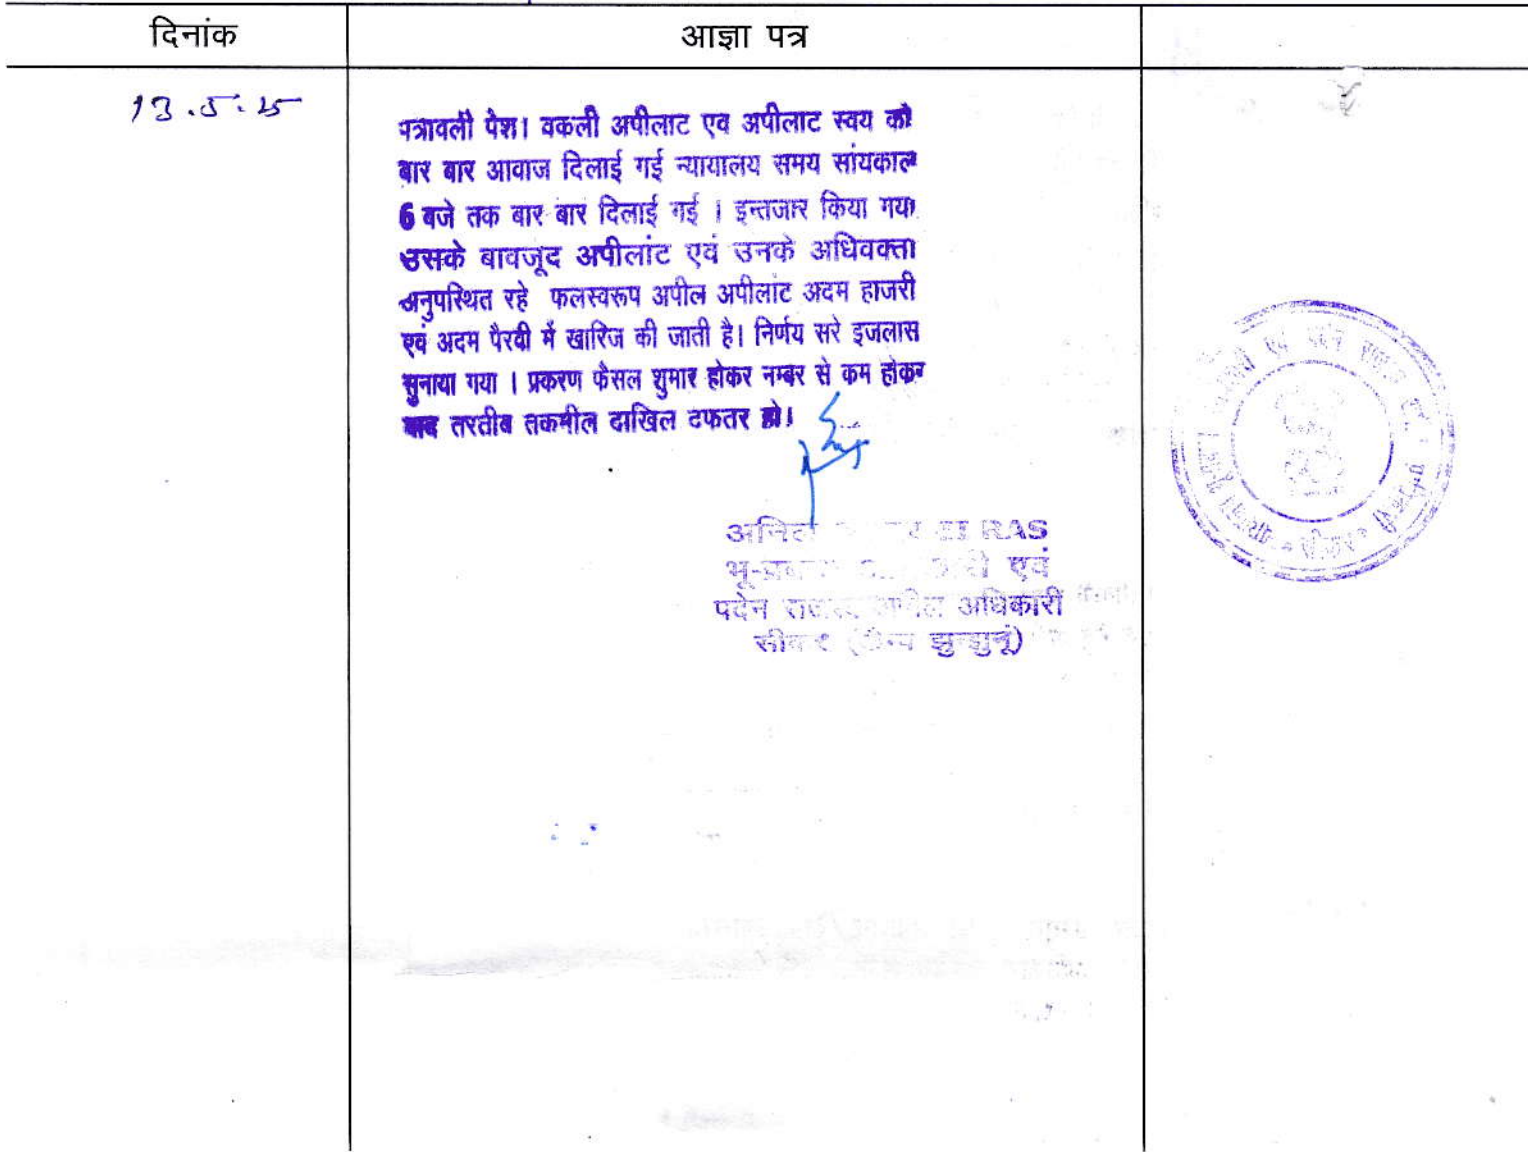 दिनांक
आज्ञा पत्र
13.5.25
पत्रावली पेश। वकली अपीलाट एव अपीलाट स्वय को
बार बार आवाज दिलाई गई न्यायालय समय सांयकाल
6 बजे तक बार बार दिलाई गई । इन्तजार किया गया
उसके बावजूद अपीलांट एवं उनके अधिवक्ता
अनुपस्थित रहे फलस्वरूप अपील अपीलांट अदम हाजरी
एवं अदम पैरवी में खारिज की जाती है। निर्णय सरे इजलास
सुनाया गया । प्रकरण फैसल शुमार होकर नम्बर से कम होकर
बाद तरतीब तकमील दाखिल दफतर हो।
RAS
एवं
पदेन अधिकारी
झुन्झुनूं)